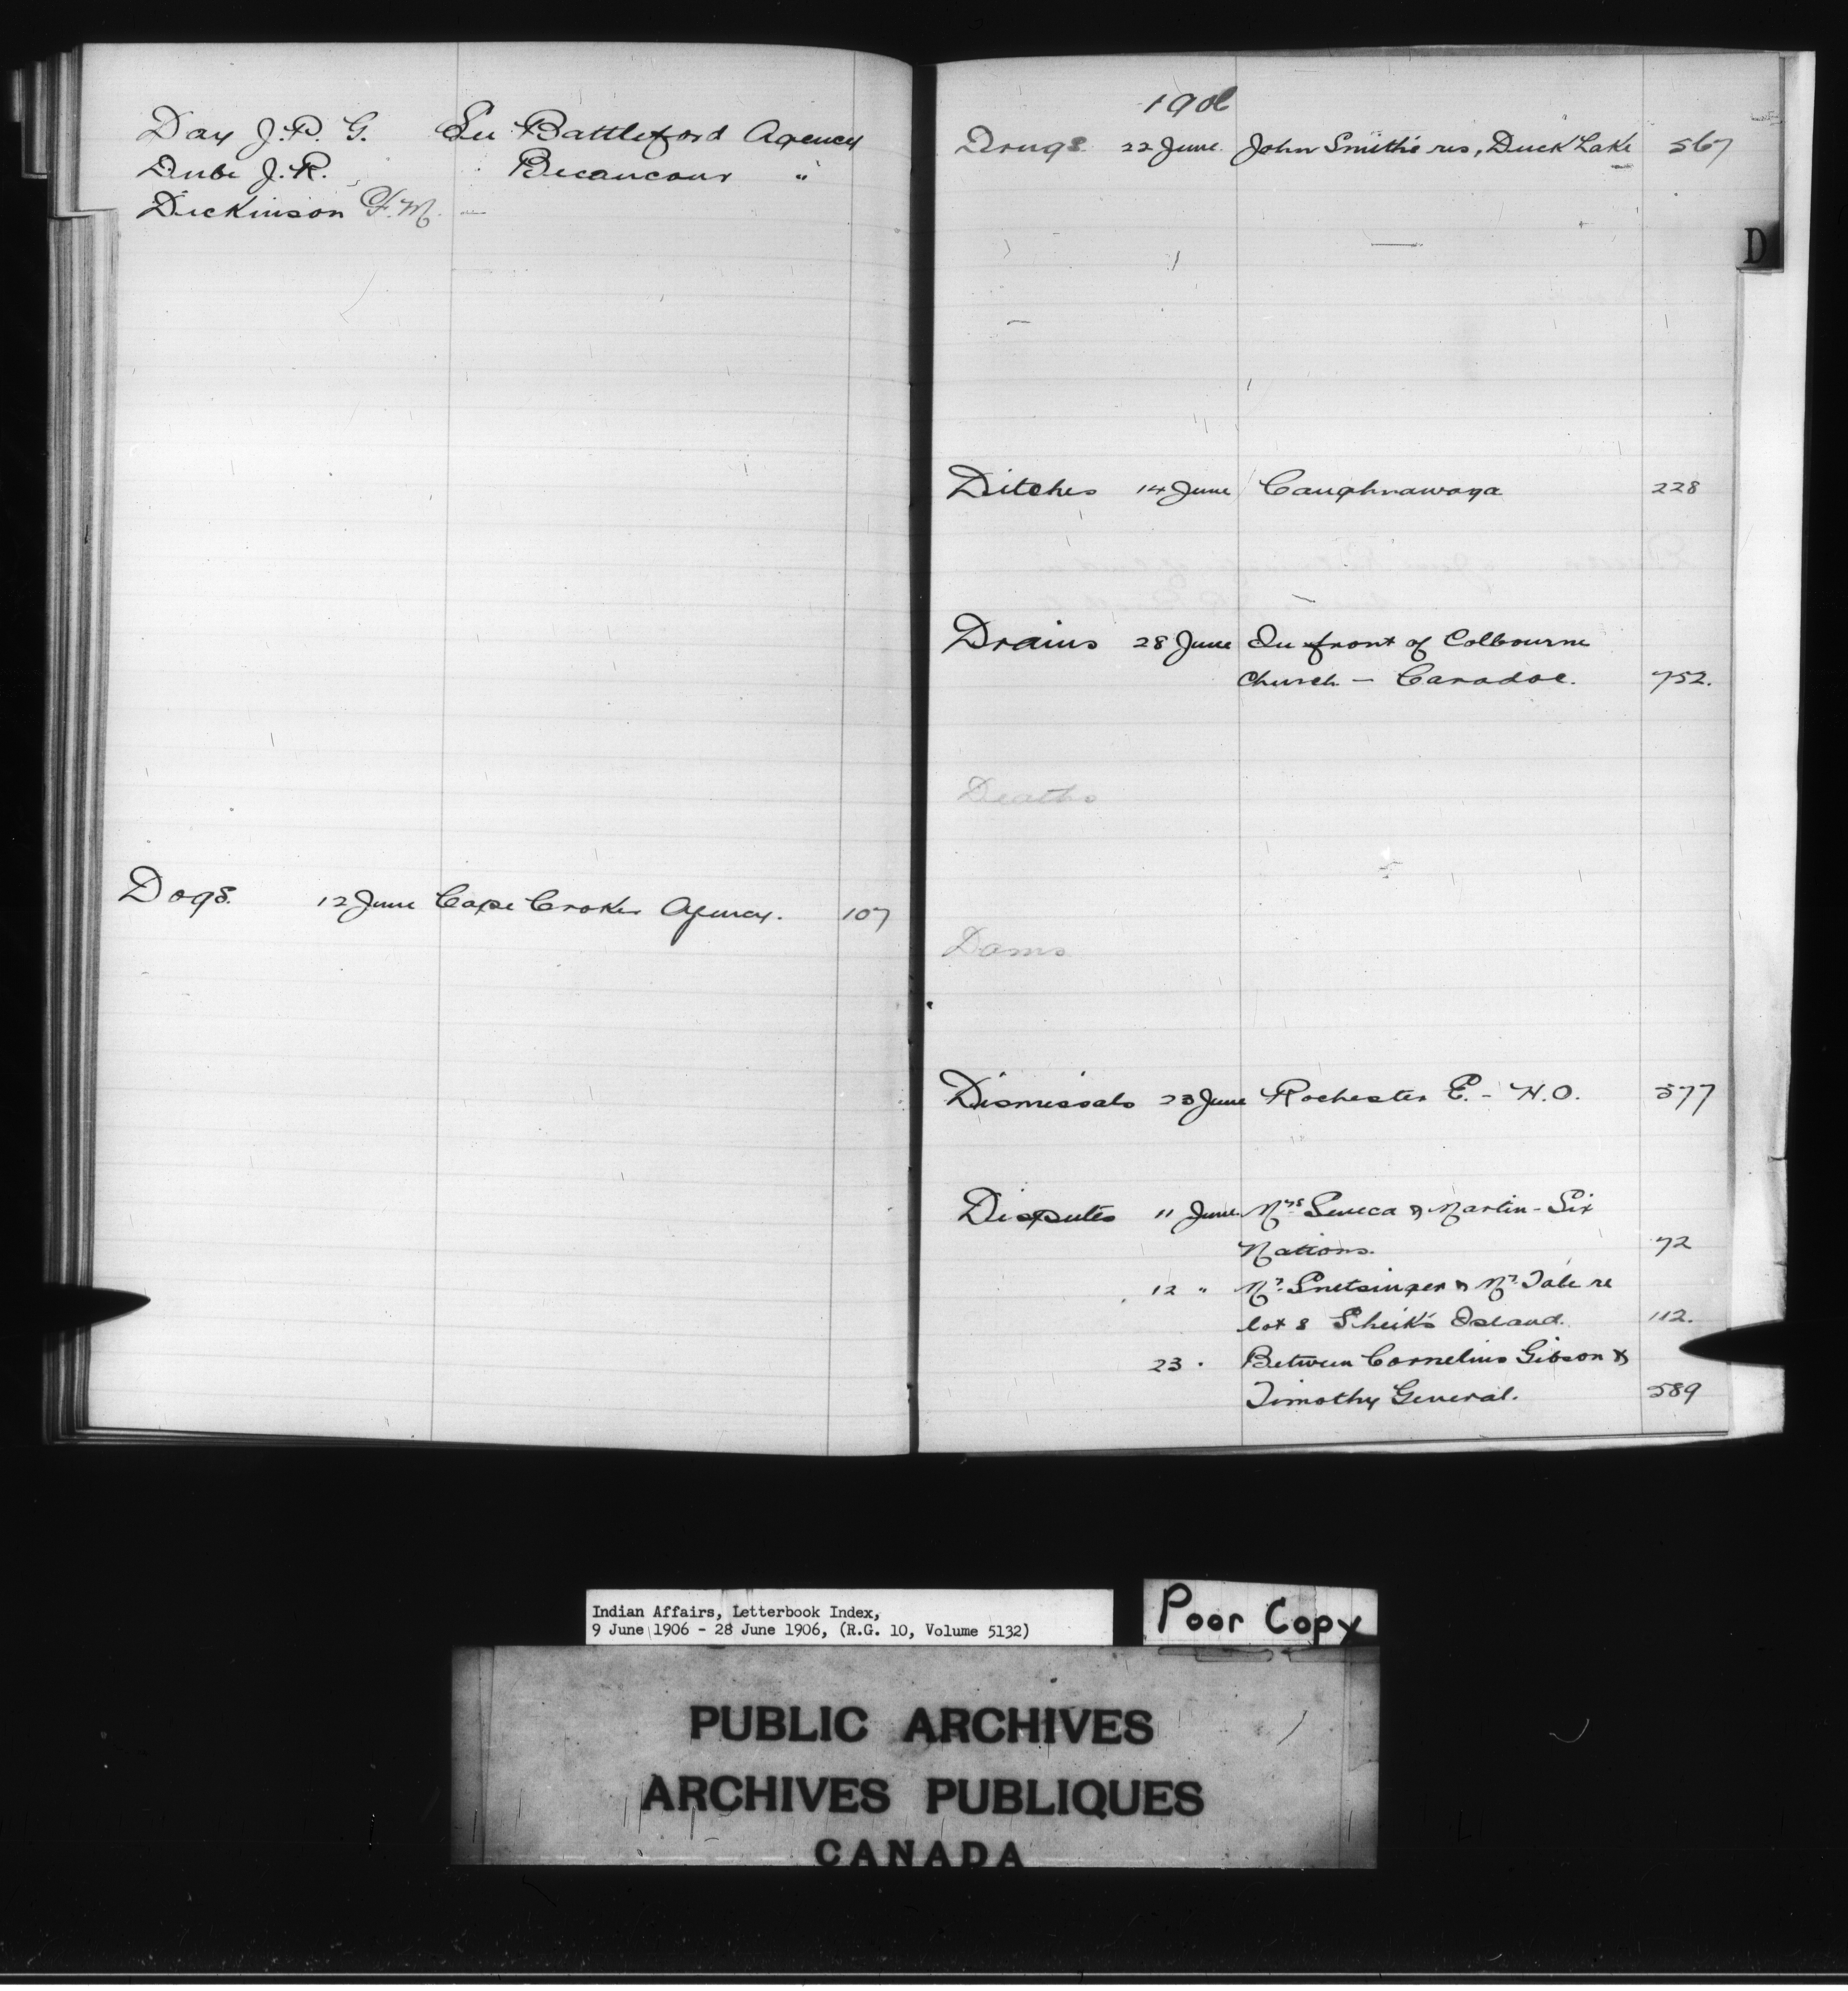 Day J. P. G. See Battleford Agency
Dube J. R. Becancour "
Dickinson F. M.
Dogs. 12 June Cape Croker Agency. 107
1906
Drugs 22 June John Smith's res, Duck Lake 567
D
Ditches 14 June Caughnawaga 228
Drains 28 June In front of Colbourne
Church - Caradoc. 752.
Deaths
Dams
Dismissals 23 June Rochester E. - H.O. 577
Disputes 11 June Mrs Seneca & Martin - Six
Nations. 72
12 " Mr. Snetsinger & Mr. Tate re
lot 8 Sheik's Island. 112.
23 " Between Cornelius Gibson &
Timothy General. 589
Indian Affairs, Letterbook Index,
9 June 1906 - 28 June 1906, (R.G. 10, Volume 5132)
Poor Copy
PUBLIC ARCHIVES
ARCHIVES PUBLIQUES
CANADA